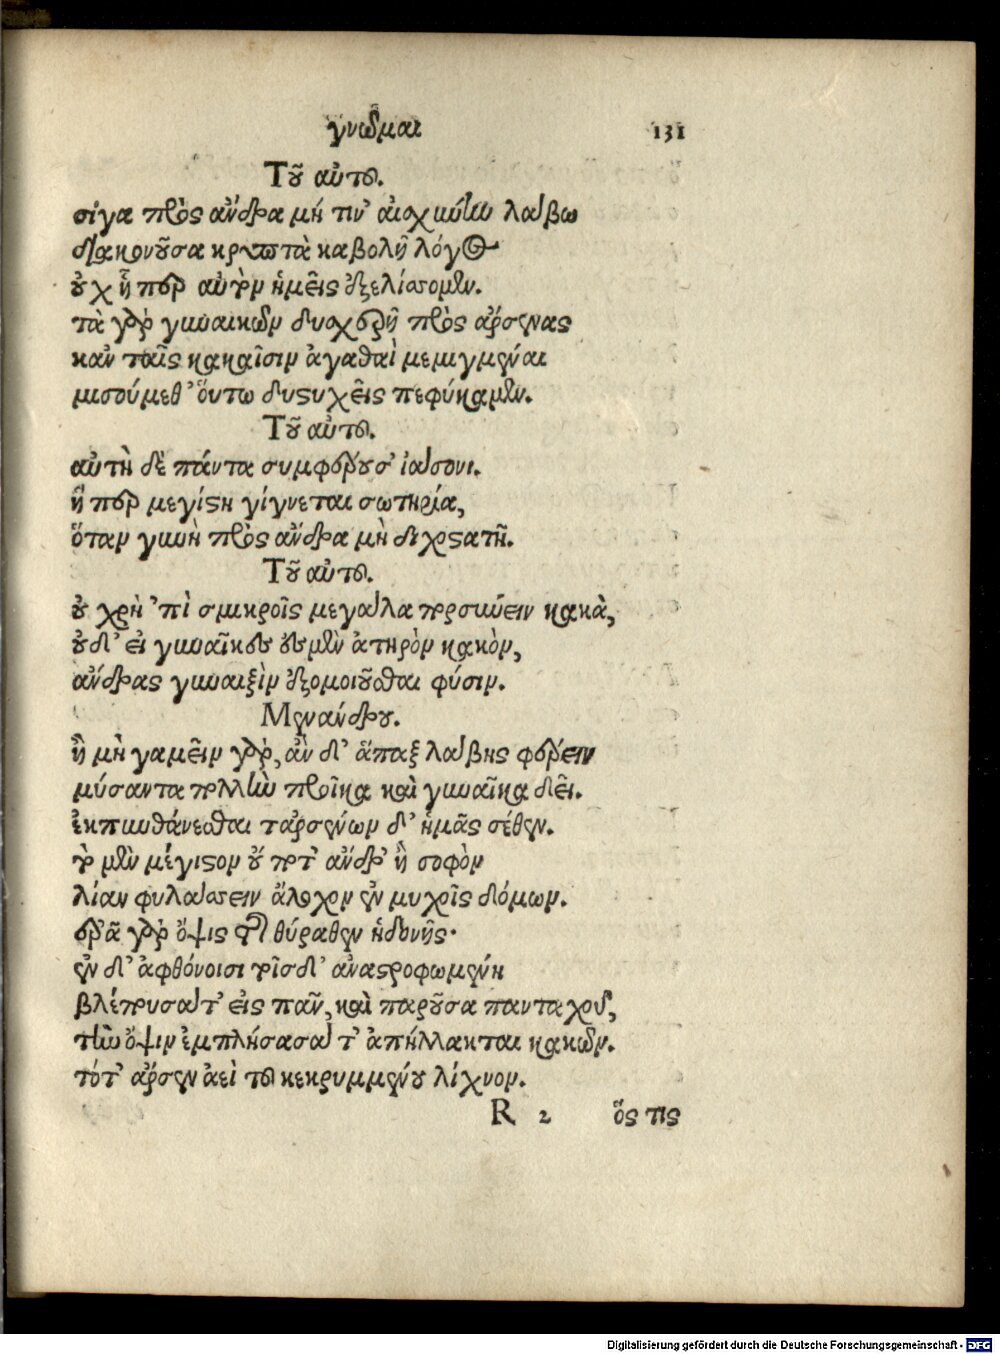 γνῶμαι 131
Τοῦ αὐτοῦ.
σίγα πρὸς ἄνδρα μή τιν' αἰσχύνην λάβω
διακονοῦσα κρυπτὰ καβολῆ λόγος
οὐχ ἧπερ αὐτὸν ἡμεῖς ἐξελίσσομεν.
τὰ γὰρ γυναικῶν δυσχερῆ πρὸς ἄρσενας
κἀν ταῖς κακαῖσιν ἀγαθαὶ μεμιγμέναι
μισούμεθ' ὅυτω δυστυχεῖς πεφύκαμεν.
Τοῦ αὐτοῦ.
αὐτὴ δὲ πάντα συμφέρουσ' ἰάσονι.
ἥπερ μεγίστη γίγνεται σωτηρία,
ὅταν γυνὴ πρὸς ἄνδρα μὴ διχοστατῆ.
Τοῦ αὐτοῦ.
οὐ χρὴ 'πὶ σμικροῖς μεγάλα πορσύνειν κακὰ,
οὐδ' εἰ γυναῖκες ἐσμὲν ἀτηρὸν κακὸν,
ἄνδρας γυναιξὶν ἐξομοιοῦσθαι φύσιν.
Μενάνδρου.
ἢ μὴ γαμεῖν γὰρ, ἂν δ' ἅπαξ λάβης φέρειν
μύσαντα πολλὴν προῖκα καὶ γυναῖκα δεῖ.
ἐκπυνθάνεσθαι ταρσένων δ' ἡμᾶς σέθεν.
τὸ μὲν μέγιστον οὔ ποτ' ἄνδρ' ἢ σοφὸν
λίαν φυλάσσειν ἄλοχον ἐν μυχοῖς δόμων.
ἐρᾶ γὰρ ὄψις τῆς θύραθεν ἡδονῆς·
ἐν δ' ἀφθόνοισι τοῖσδ' ἀναστροφωμένη
βλέπουσά τ' εἰς πᾶν, καὶ παροῦσα πανταχοῦ,
τὴν ὄψιν ἐμπλήσασά τ' ἀπήλλακται κακῶν.
τότ' ἄρσεν ἀεὶ τοῦ κεκρυμμένου λίχνον.
R 2 ὅς τις
Digitalisierung gefördert durch die Deutsche Forschungsgemeinschaft - DFG